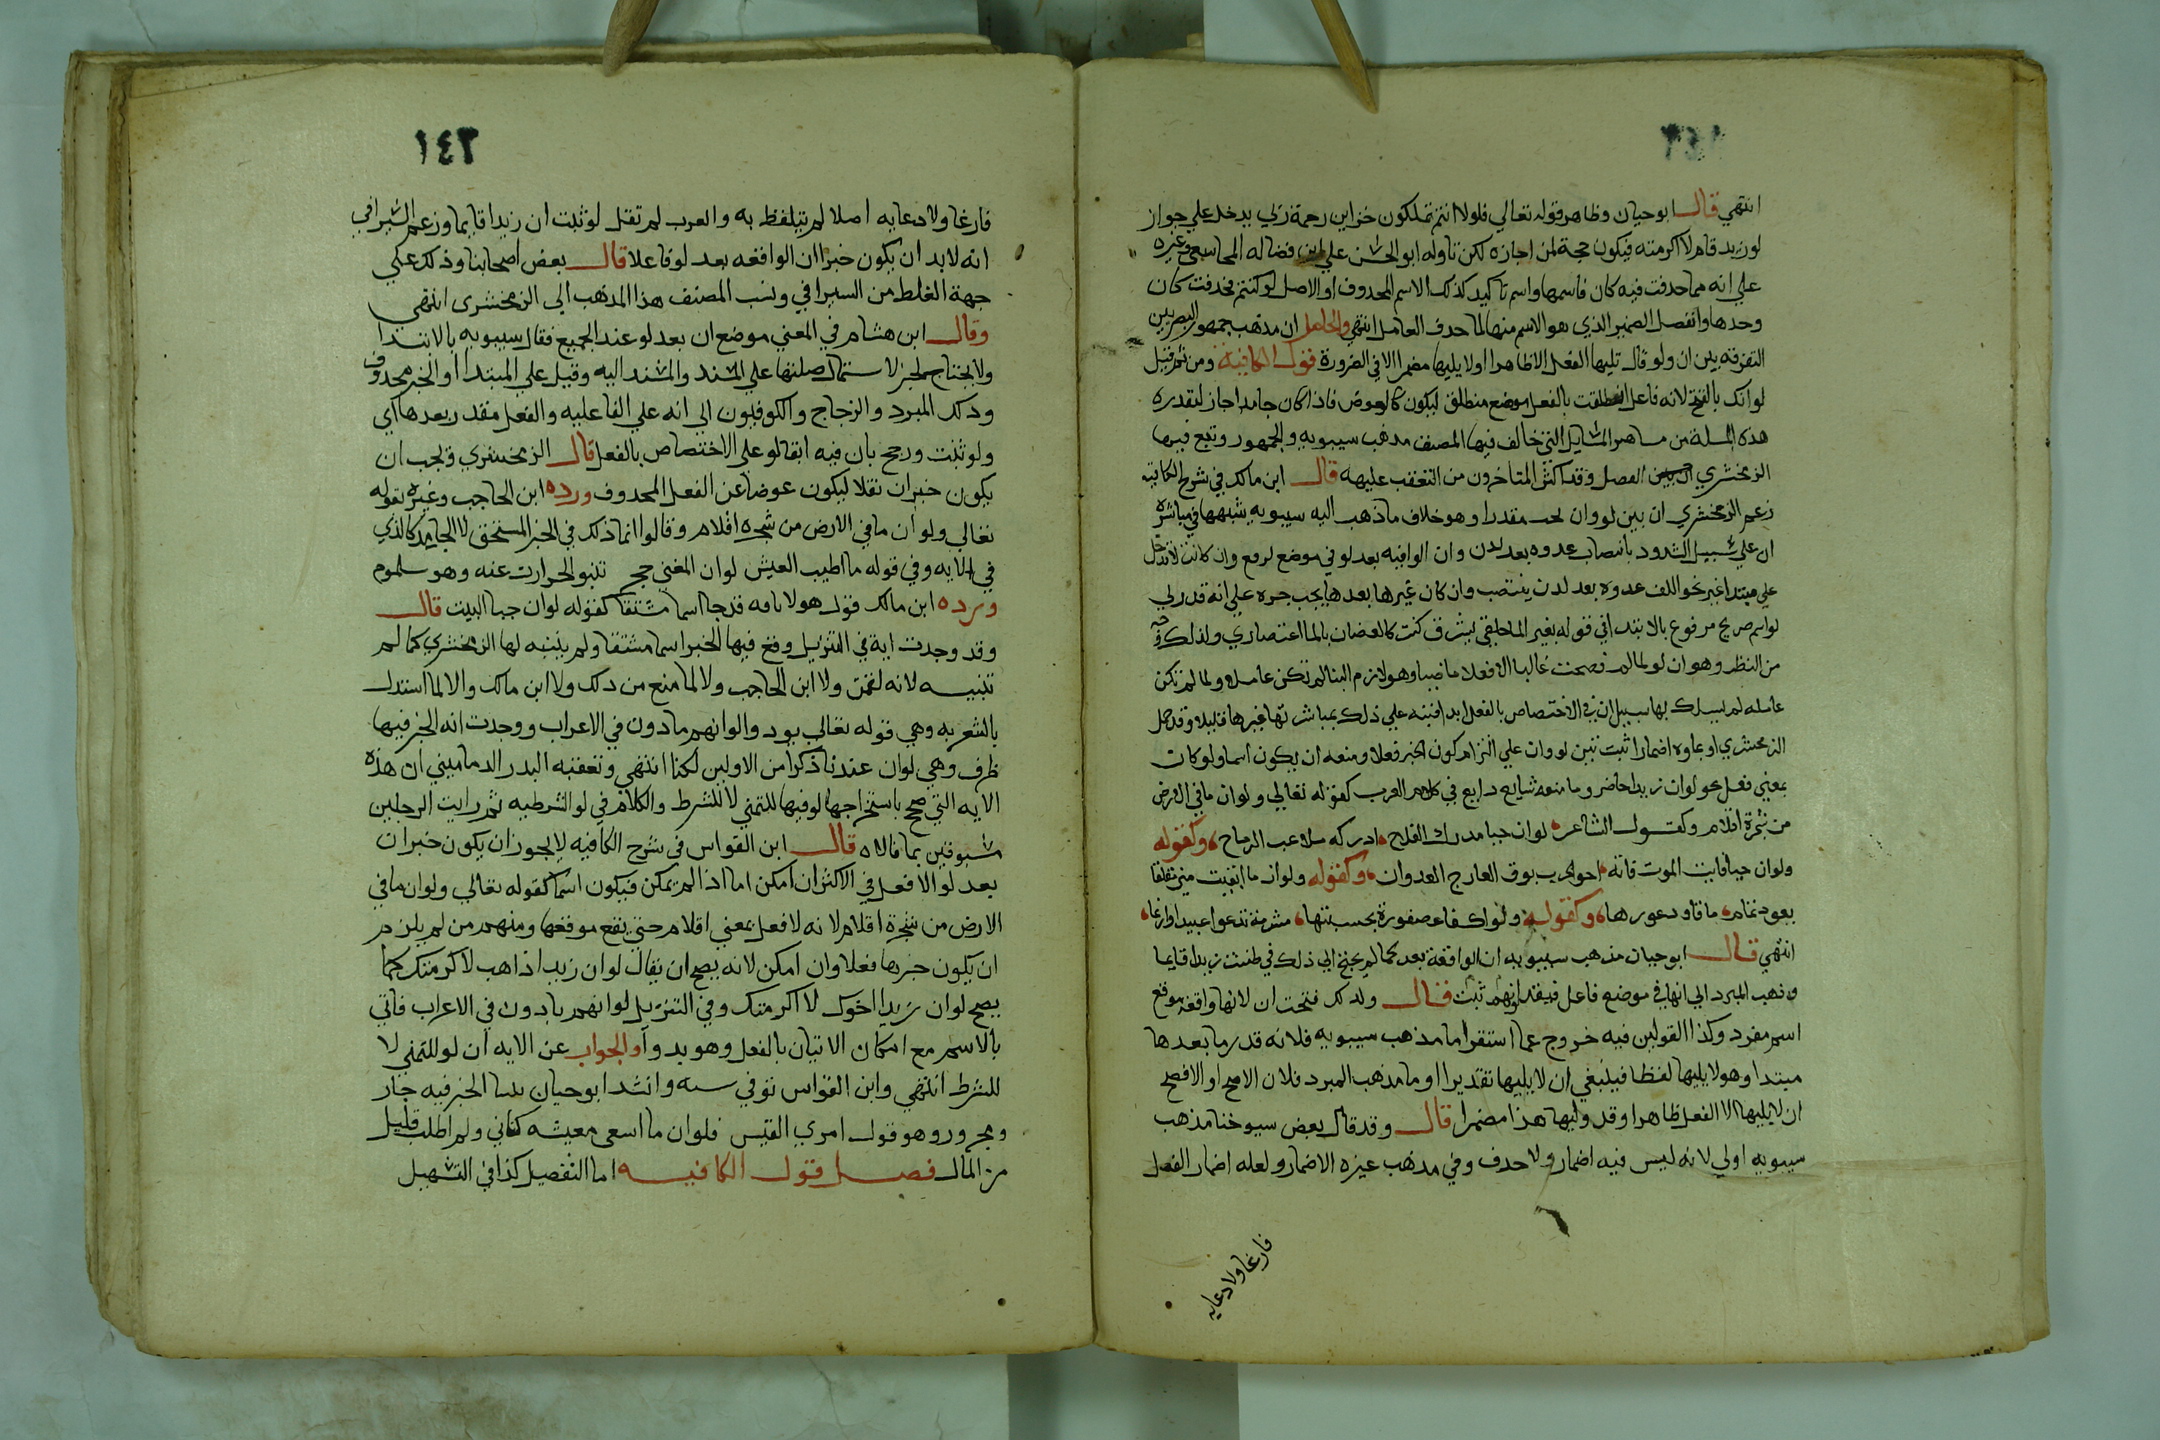 انتهي قال ابو حيان وظاهر قوله تعالي قل لو انتم تملكون خزاين رحمة ربي يدخل علي جواز
لو زيد قام لاكرمته فيكون حجة لمن اجازه لكن تاوله ابو الحسن علي ابن فضاله المجاسعي وغيره
علي انه مما حدفت فيه كان فاسمها واسم تاكيد كذلك الاسم المحدوف او الاصل لو كنتم فحدفت كان
وحدها وانفصل الضمير الذي هو الاسم منها لما حدف العامل انتهي والحاصل ان مدهب جمهور البصريين
التفرقه بين ان ولو قال تليها الفعل الا ظاهرا او لا يليها مضمرا الا في الضرورة قول الكافية ومن ثم قيل
لو انك بالفتح لانه فاعل انطلقت بالفعل موضع منطلق ليكون كالعوض فاذا كان جامدا جاز لتقدره
هده المسلة من المسايل التي خالف فيها المصنف مدهب سيبويه والجمهور وتبع فيها
الزمخشري الفصل وقد اكثر المتاخرون من التعقب عليهه قال ابن مالك في شرح الكافيه
زعم الزمخشري ان بين لو وان مقدرا وهو خلاف ما ذهب اليه سيبويه شبهها في مباشرة
ان علي سبيل الشدود بانتصاب عدوه بعد لدن وان الواقيه بعد لو في موضع لرفع وان كانت لا تدخل
علي مبتدا غير نحو اللف عدوه بعد لدن ينتصب وان كان غيرها بعدها يجب جره علي انه قد ولي
لو اسم صريح مرفوع بالابتدا في قوله بغير الما حلقي شرق كنت كالغصان بالما اعتصاري ولذلك وجه
من النظر وهو ان لو لما لم تصحت غالبا الا فعلا ماضيا وهو لازم البنا لم تكن عامله ولما لم تكن
عامله لم يسلك بها سبيل ان في الاختصاص بالفعل ابدا فنبه علي ذلك بمباشرتها غيرها قليلا وقد حمل
الزمخشري ادعاوه اضمارا ثبت بين لو وان علي التزام كون الخبر فعلا ومنعه ان يكون اسما ولو كان
بمعني فعل نحو لو ان زيدا حاضر وما منعه شايع دايع في كلام العرب كقوله تعالي ولو ان ما في الارض
من شجرة اقلام وكقول الشاعر لو ان حيا مدرك الفلاح ادركه ملاعب الرماح وكقوله
ولو ان حيا فايت الموت فاته اخو الحرب بوق القارح العدوان وكقوله ولو ان ما ابقيت مني معلقا
بعود ثمام ما تاود عودها وكقوله ولو اصفا عصفورة بحسبتها مسومة تدعوا عبيدا وازنما
انتهي قال ابو حيان مدهب سيبويه ان الواقعة بعدها لم يحتج الي ذلك في ظننت زيدا قايما
وذهب المبرد الي انها في موضع فاعل فيقدر لو انهم ثبت قال ولدلك فتحت ان لانها واقعة موقع
اسم مفرد وكذا القولين فيه خروج عما استقرا ما مذهب سيبويه فلانه قدر ما بعدها
مبتدا وهو لا يليها لفظا فينبغي ان لا يليها تقديرا او ما مذهب المبرد فلان الاصح او الافصح
ان لا يليها الا الفعل ظاهرا وقد وليها هذا مضمرا قال وقد قال بعض سيوخنا مذهب
سيبويه اولي لانه ليس فيه اضمار ولا حدف وفي مدهب غيره الاضمار ولعله اضمار الفعل
فارغا ولا دعايه
١٤٣
فارغا ولا دعايه اصلا لم يتلفظ به والعرب لم تقل لو ثبت ان زيدا قايما وزعم السيرافي
انه لا بد ان يكون خبر ان الواقعه بعد لو فاعلا قال بعض اصحابنا وذلك علي
جهة الغلط من السيرافي ونسب المصنف هذا المدهب الي الزمخشري انتهي
وقال ابن هشام في المعني موضع ان بعد لو عند الجميع فقال سيبويه بالابتدا
ولا يحتاج لخبر لاستمال صلتها علي المسند والمسند اليه وقيل علي المبتدا او الخبر محدوف
ودكد المبرد والزجاج والكوفيون الي انه علي الفاعليه والفعل مقدر بعدها اي
ولو ثبت ورجح بان فيه ابقا لو علي الاختصاص بالفعل قال الزمخشري ويجب ان
يكون خبر ان نقلا ليكون عوضا عن الفعل المحدوف ورده ابن الحاجب وغيره بقوله
تعالي ولو ان ما في الارض من شجره اقلام وقالوا انما ذلك في الخبر المستحق لا الجامد كالذي
في الايه وفي قوله ما اطيب العيش لو ان المغني حجر تنبو الحوارث عنه وهو سلموم
ورده ابن مالك قول هولا بانه قد جا اسما مشتقا كقوله لو ان حيا البيت قال
وقد وجدت اية في التنزيل وقع فيها الخبر اسما مشتقا ولم يتنبه لها الزمخشري كما لم
تنبيه لانه لقمن ولا ابن الحاجب ولا لما منع من دلك ولا ابن مالك والا لما استدل
بالشعر به وهي قوله تعالي يود والو انهم مادون في الاعراب ووجدت انه الخبر فيها
ظرف وهي لو ان عندنا ذكرا من الاولين لكنا انتهي وتعقبه البدر الدماميني ان هذه
الايه التي صح باستخراجها لو فيها للتمني لا للشرط والكلام في لو الشرطيه ثم رايت الرجلين
مسبوقين بما قالاه قال ابن القواس في شرح الكافيه لا يجوز ان يكون خبر ان
بعد لو الا فعل في الاكثر ان امكن اما اذا لم يمكن فيكون اسما كقوله تعالي ولو ان ما في
الارض من شجرة اقلام لانه لا فعل بمعني اقلام حتي يقع موقعها ومنهم من لم يلزم
ان يكون خبرها فعلا وان امكن لانه يصح ان يقال لو ان زيدا ذاهب لاكرمتك كما
يصح لو ان زيدا اخوك لاكرمتك وفي التنزيل لو انهم بادون في الاعراب فاتي
بالاسم مع امكان الاتيان بالفعل وهو بدوا والجواب عن الايه ان لو للتمني لا
للشرط انتهي وابن القواس توفي سنه وانشد ابو حيان الخبر فيه جار
ومجرور وهو قول امري القيس فلو ان ما اسعي معيشه كفاني ولم اطلب قليل
من المال فصل قول الكافيه اما التفصيل كذا في التسهيل